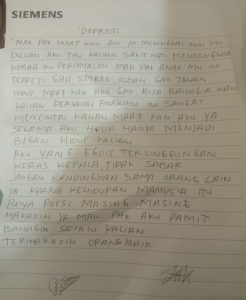 SIEMENS
"DEPRESI"
"MAK PAK MAAF KAN AKU YA MENINGGAL KAN MU
DULUAN, AKU TAU KALIAN SAKIT HATI MENDENGAR
KABAR KU PERCAYALAH MAK PAK ANAK MU INI
DEPRESI DAN STRESS SUDAH GAK TAHAN
HIDUP, MAAF KAN AKU GAK BISA BAHAGIA KAN
KALIAN PERCAYALAH ANAKMU INI SANGAT
MENCINTAI KALIAN MAAF KAN AKU YA
SELAMA AKU HIDUP HANYA MENJADI
BEBAN HIDUP KALIAN
AKU YANG EGOIS TERSINGGUNGAN,
KERAS KEPALA, TIDAK SABAR
JANGAN BANDINGKAN SAMA ORANG LAIN
YA, KARNA KEHIDUPAN MANUSIA ITU
PUNYA PORSI MASING-MASING
MAKASIH YA MAK PAK AKU PAMIT
BAHAGIA SELALU KALIAN
TERIMAKASIH ORANG BAIK